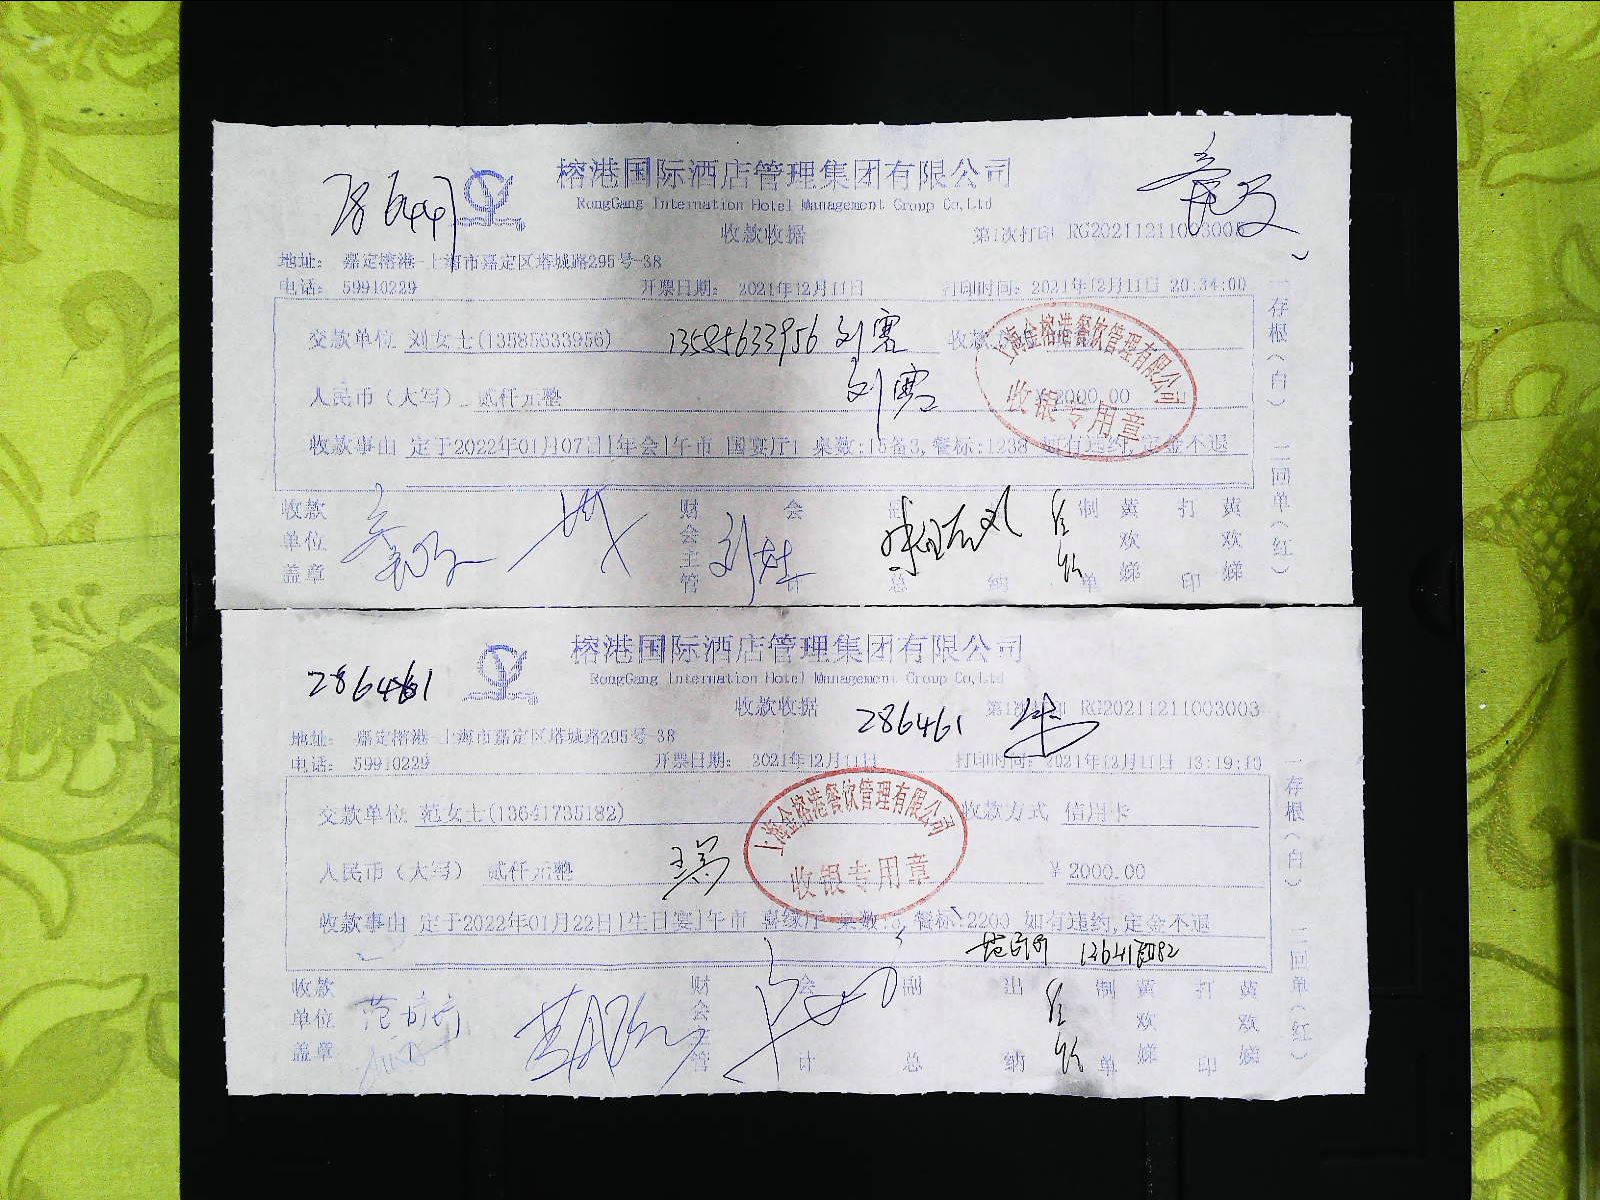 榕港国际酒店管理集团有限公司
RongGang Internation Hotel Management Group Co,Ltd
收款收据
第1次打印
地址： 嘉定榕港-上海市嘉定区塔城路295号-38
电话： 59910229 开票日期： 2021年12月11日 打印时间：2021年12月11日 20:34:00
交款单位 刘女士(13585633956) 13585633956 收款
人民币（大写） 贰仟元整 ¥ 2000.00
收款事由 定于2022年01月07日|年会|午市 国宴厅1 桌数:15备3,餐标:1238 如有违约,定金不退
上海金榕港餐饮管理有限公司
收银专用章
收款单位盖章 财会主管 会计 副总 纳 制单 黄欢娣 打印 黄欢娣
一存根（白） 二回单（红）
286461
榕港国际酒店管理集团有限公司
RongGang Internation Hotel Management Group Co,Ltd
收款收据
286461 第1次打印 RG20211211003003
地址： 嘉定榕港-上海市嘉定区塔城路295号-38
电话： 59910229 开票日期： 2021年12月11日 打印时间：2021年12月11日 13:19:10
交款单位 范女士(13641735182) 收款方式 信用卡
人民币（大写） 贰仟元整 ¥ 2000.00
收款事由 定于2022年01月22日|生日宴|午市 喜缘厅 桌数:3,餐标:2203 如有违约,定金不退
上海金榕港餐饮管理有限公司
收银专用章
收款单位盖章 财会主管 会计 副总 出纳 制单 黄欢娣 打印 黄欢娣
一存根（白） 二回单（红）